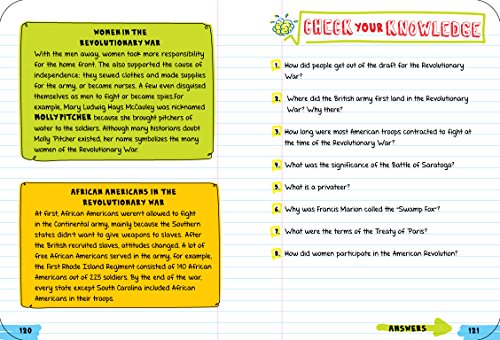 WOMEN IN THE
REVOLUTIONARY WAR
With the men away, women took more responsibility
for the home front. The also supported the cause of
independence: they sewed clothes and made supplies
for the army, or became nurses. A few even disguised
themselves as men to fight or became spies.for
example, Mary Ludwig Hays McCauley was nicknamed
MOLLY PITCHER because she brought pitchers of
water to the soldiers. Although many historians doubt
Molly Pitcher existed, her name symbolizes the many
women of the Revolutionary War.
AFRICAN AMERICANS IN THE
REVOLUTIONARY WAR
At first, African Americans weren't allowed to fight
in the Continental army, mainly because the Southern
states didn't want to give weapons to slaves. After
the British recruited slaves, attitudes changed. A lot of
free African Americans served in the army, for example,
the first Rhode Island Regiment consisted of 140 African
Americans out of 225 soldiers. By the end of the war,
every state except South Carolina included African
Americans in their troops.
120
CHECK YOUR KNOWLEDGE
1. How did people get out of the draft for the Revolutionary
War?
2. Where did the British army first land in the Revolutionary
War? Why there?
3. How long were most American troops contracted to fight at
the time of the Revolutionary War?
4. What was the significance of the Battle of Saratoga?
5. What is a privateer?
6. Why was Francis Marion called the "Swamp Fox"?
7. What were the terms of the Treaty of Paris?
8. How did women participate in the American Revolution?
ANSWERS
121